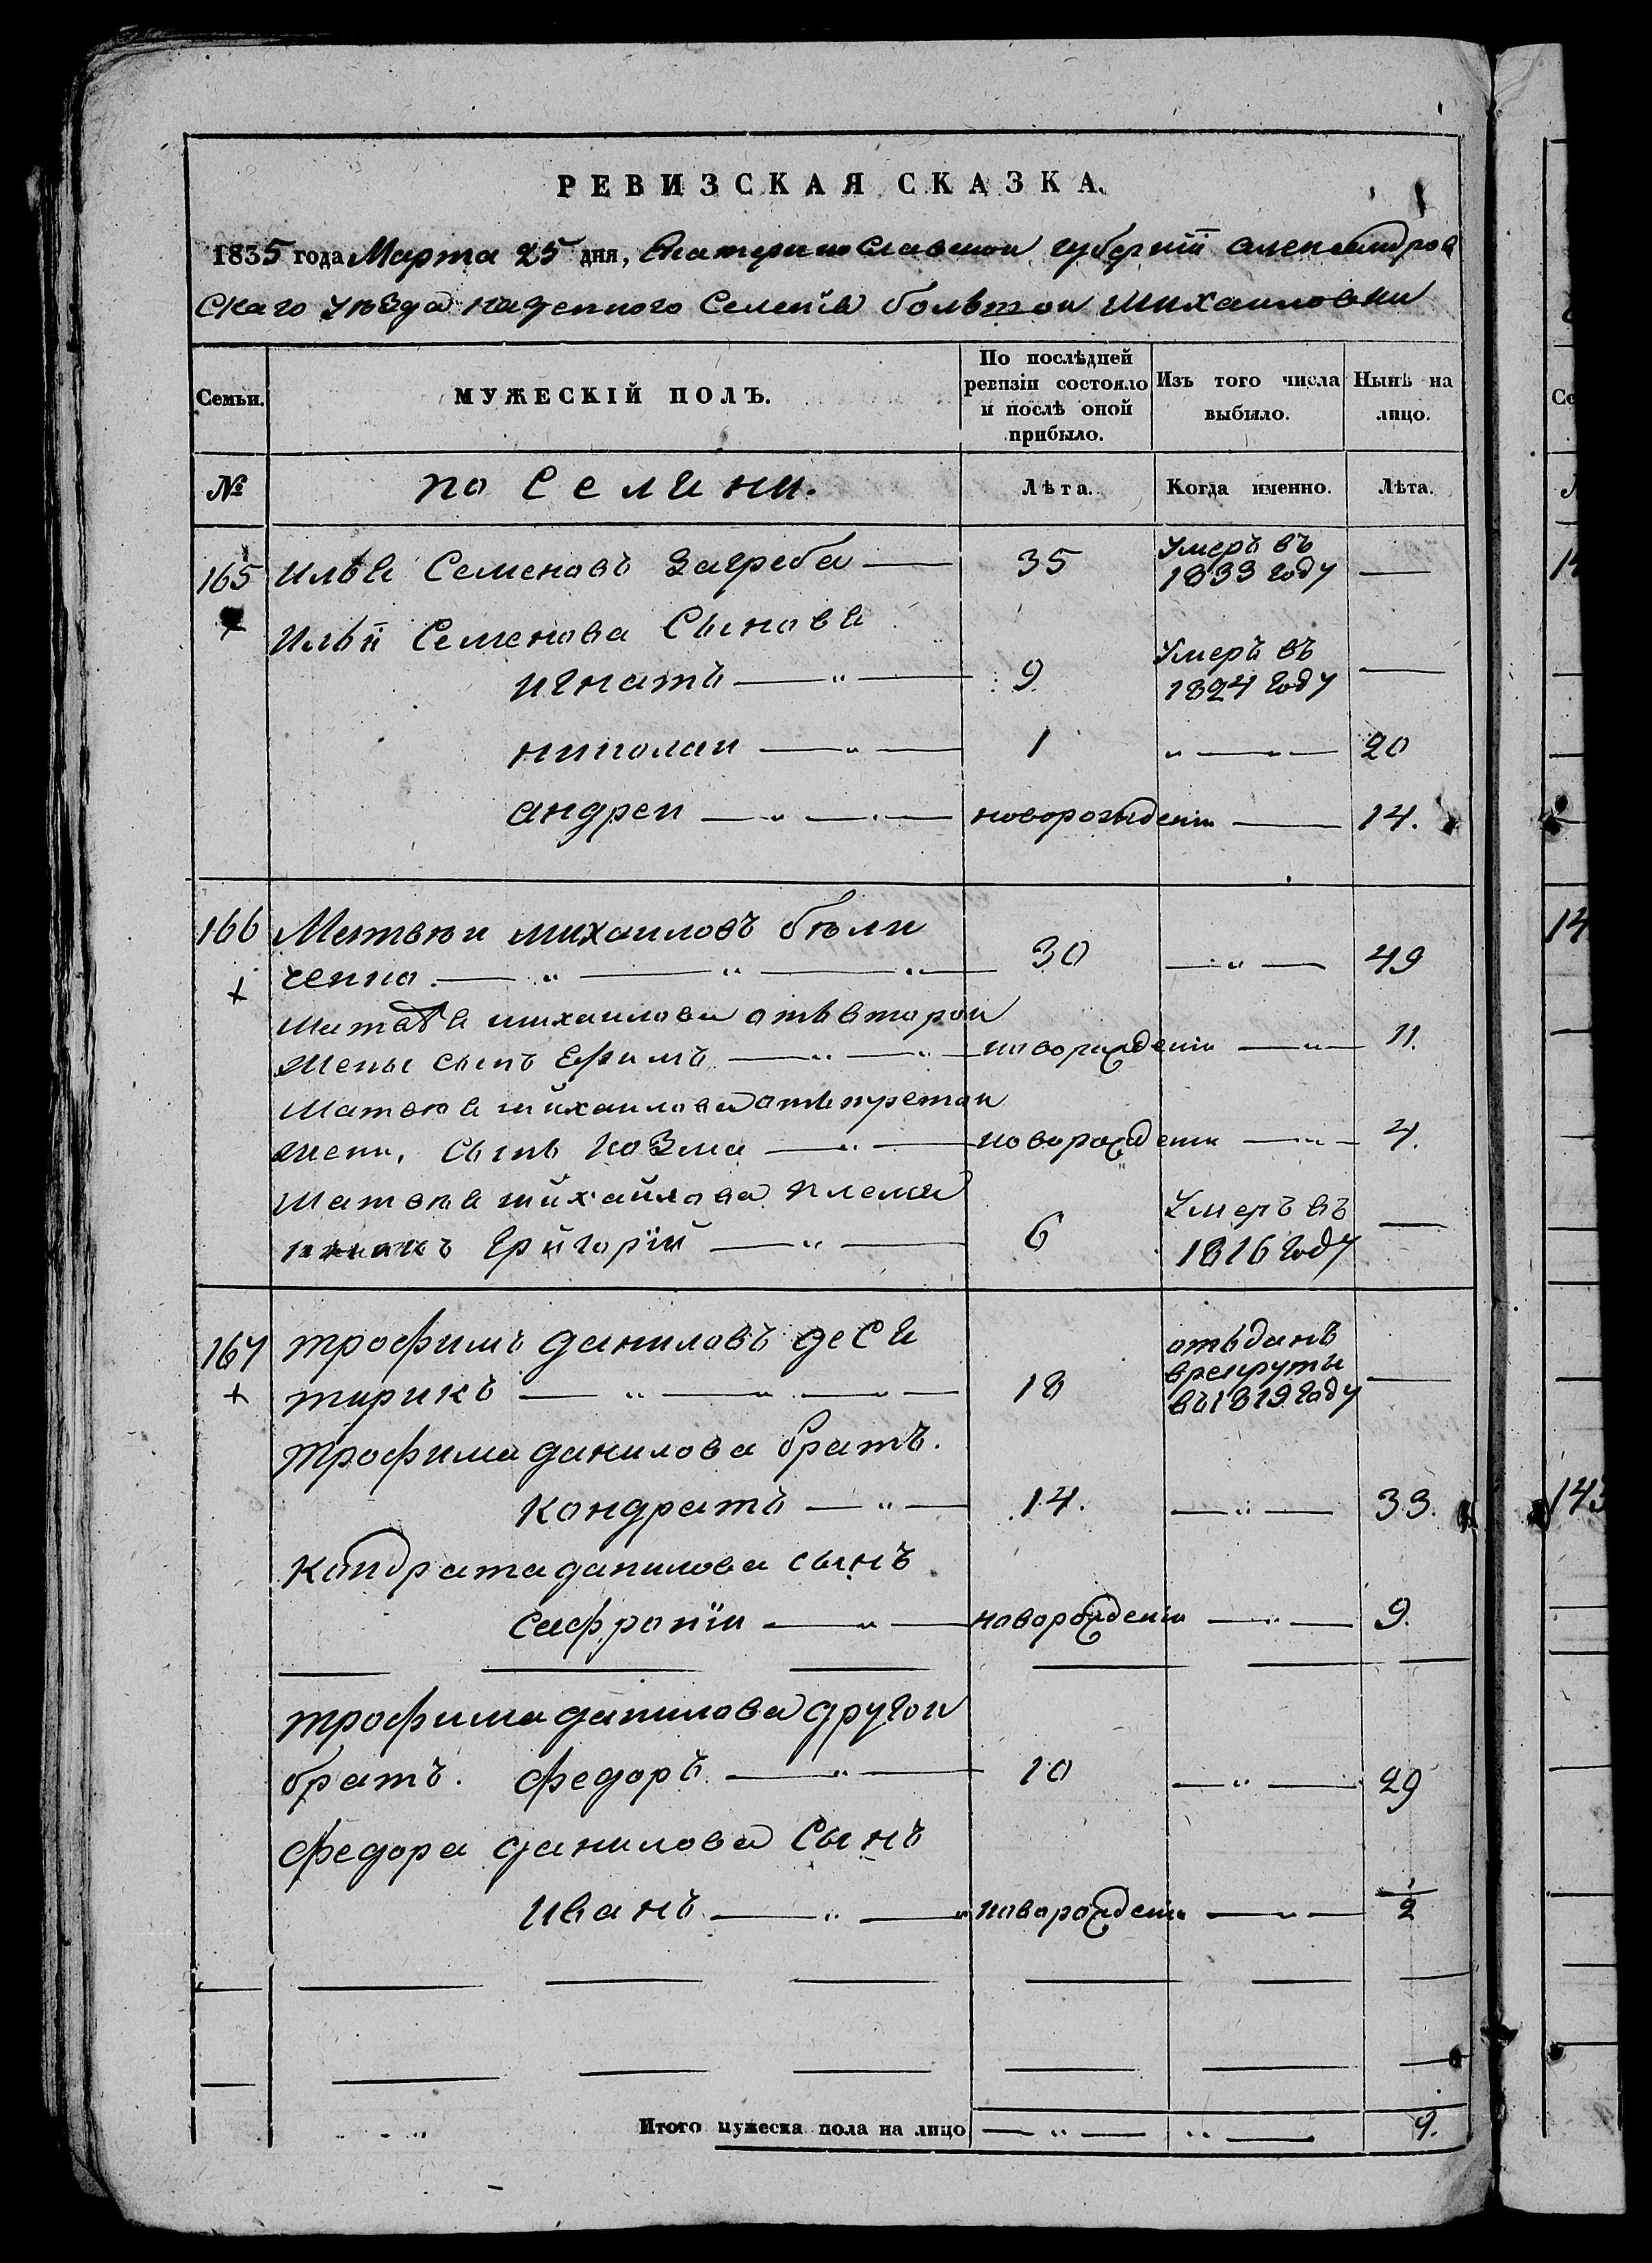 РЕВИЗСКАЯ СКАЗКА.
1835 года Марта 25 дня, Екатеринославской губернїи александров
скаго уѣзда казенного Селенїя большой михаиловки
Семьи.
МУЖЕСКІЙ ПОЛЪ.
По послѣдней ревизіи состояло и послѣ оной прибыло.
Изъ того числа выбыло.
Нынѣ на лицо.
№
поселяни.
Лѣта.
Когда именно.
Лѣта.
165 илья Семеновъ Загреба — 35 Умеръ въ 1833 году —
Ильи Семенова Сыновя
игнатъ — " — 9 Умеръ въ 1824 году —
николаи — " — 1 " — " — 20
андреи — " — новорожденни — 14.
166 Матвѣи михаиловъ бѣли
ченко — " — " — " — 30 — " — 49
Матвѣя михаилова отъ второи
жены сынъ Ефимъ — " — " — новорожденни — " — 11.
Матвѣя михаилова отъ третои
жени, сынъ козма — " — новорожденни — " — 4.
Матвѣя михайлова племя
никъ григорїй — " — 6 Умеръ въ 1816 году —
167 трофимъ даниловъ дея
тирикъ — " — " — " — 18 отъданъ врекруты въ 1819 году —
трофима данилова братъ.
кондратъ — " — 14. — " — 33.
кондрата данилова сынъ
сафронїи — " — новорожденни — " — 9.
трофима данилова другои
братъ. федоръ — " — 10 — " — 29
федора данилова сынъ
иванъ — " — " новорожденни — " — 1/2
Итого мужеска пола на лицо — " — " — 9.
14
14
143